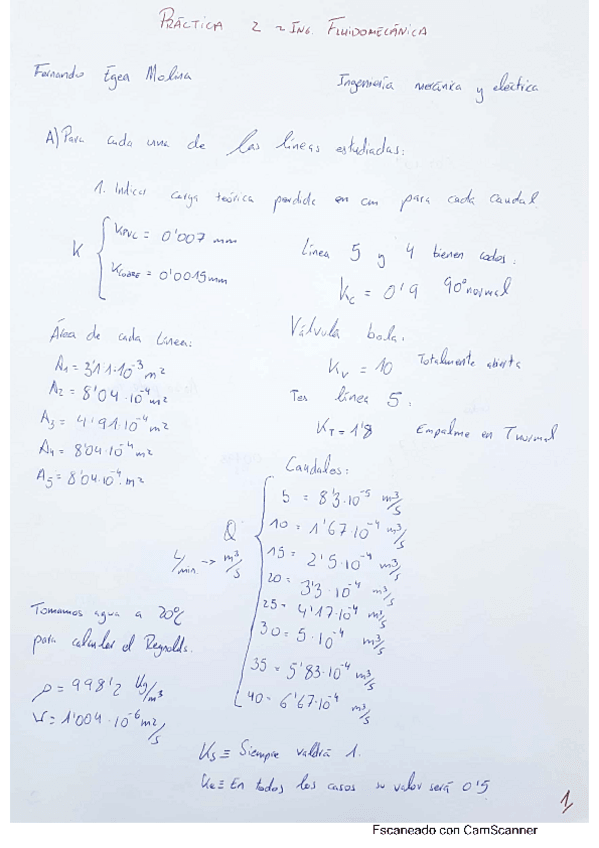 PRÁCTICA 2 - ING. FLUIDOMECÁNICA
Fernando Egea Molina
Ingeniería mecánica y eléctrica
A) Para cada una de las líneas estudiadas:
1. Indicar carga teórica perdida en cm para cada caudal.
K
K PVC = 0'007 mm
K COBRE = 0'0015 mm
Línea 5 y 4 tienen codos:
Kc = 0'9 90º normal
Área de cada línea:
A1 = 3'11·10^-3 m²
A2 = 8'04·10^-4 m²
A3 = 4'91·10^-4 m²
A4 = 8'04·10^-4 m²
A5 = 8'04·10^-4 m²
Válvula bola.
Kv = 10 Totalmente abierta
Tes línea 5:
KT = 1'8 Empalme en T normal
Caudales:
L/min -> m³/s
Q
5 = 8'3·10^-5 m³/s
10 = 1'67·10^-4 m³/s
15 = 2'5·10^-4 m³/s
20 = 3'3·10^-4 m³/s
25 = 4'17·10^-4 m³/s
30 = 5·10^-4 m³/s
35 = 5'83·10^-4 m³/s
40 = 6'67·10^-4 m³/s
Tomamos agua a 20ºC
para calcular el Reynolds.
ρ = 998'2 kg/m³
ν = 1'004·10^-6 m²/s
Ks ≡ Siempre valdrá 1.
Ke ≡ En todos los casos su valor será 0'5.
1
Escaneado con CamScanner